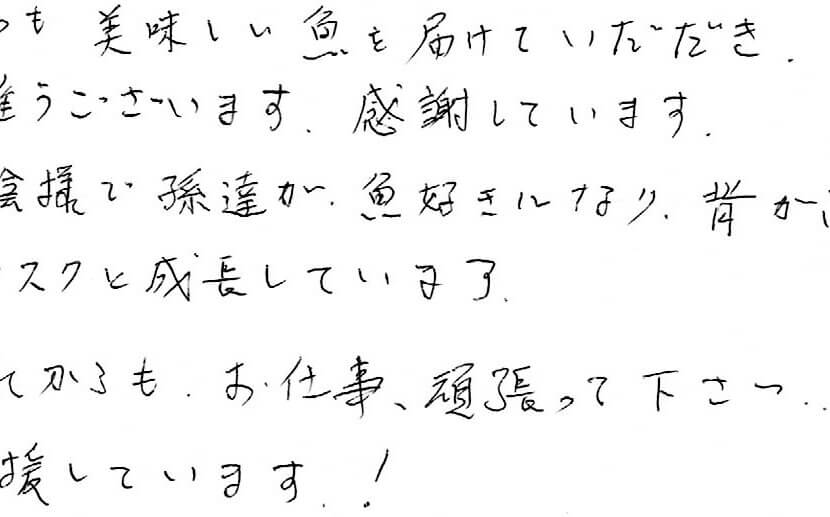 つも 美味しい 魚を 届けていただき.
難うございます. 感謝しています.
陰様で 孫達が. 魚好きになり. 背が
スクと成長しています.
てからも. お仕事、頑張って下さい..
援しています. !